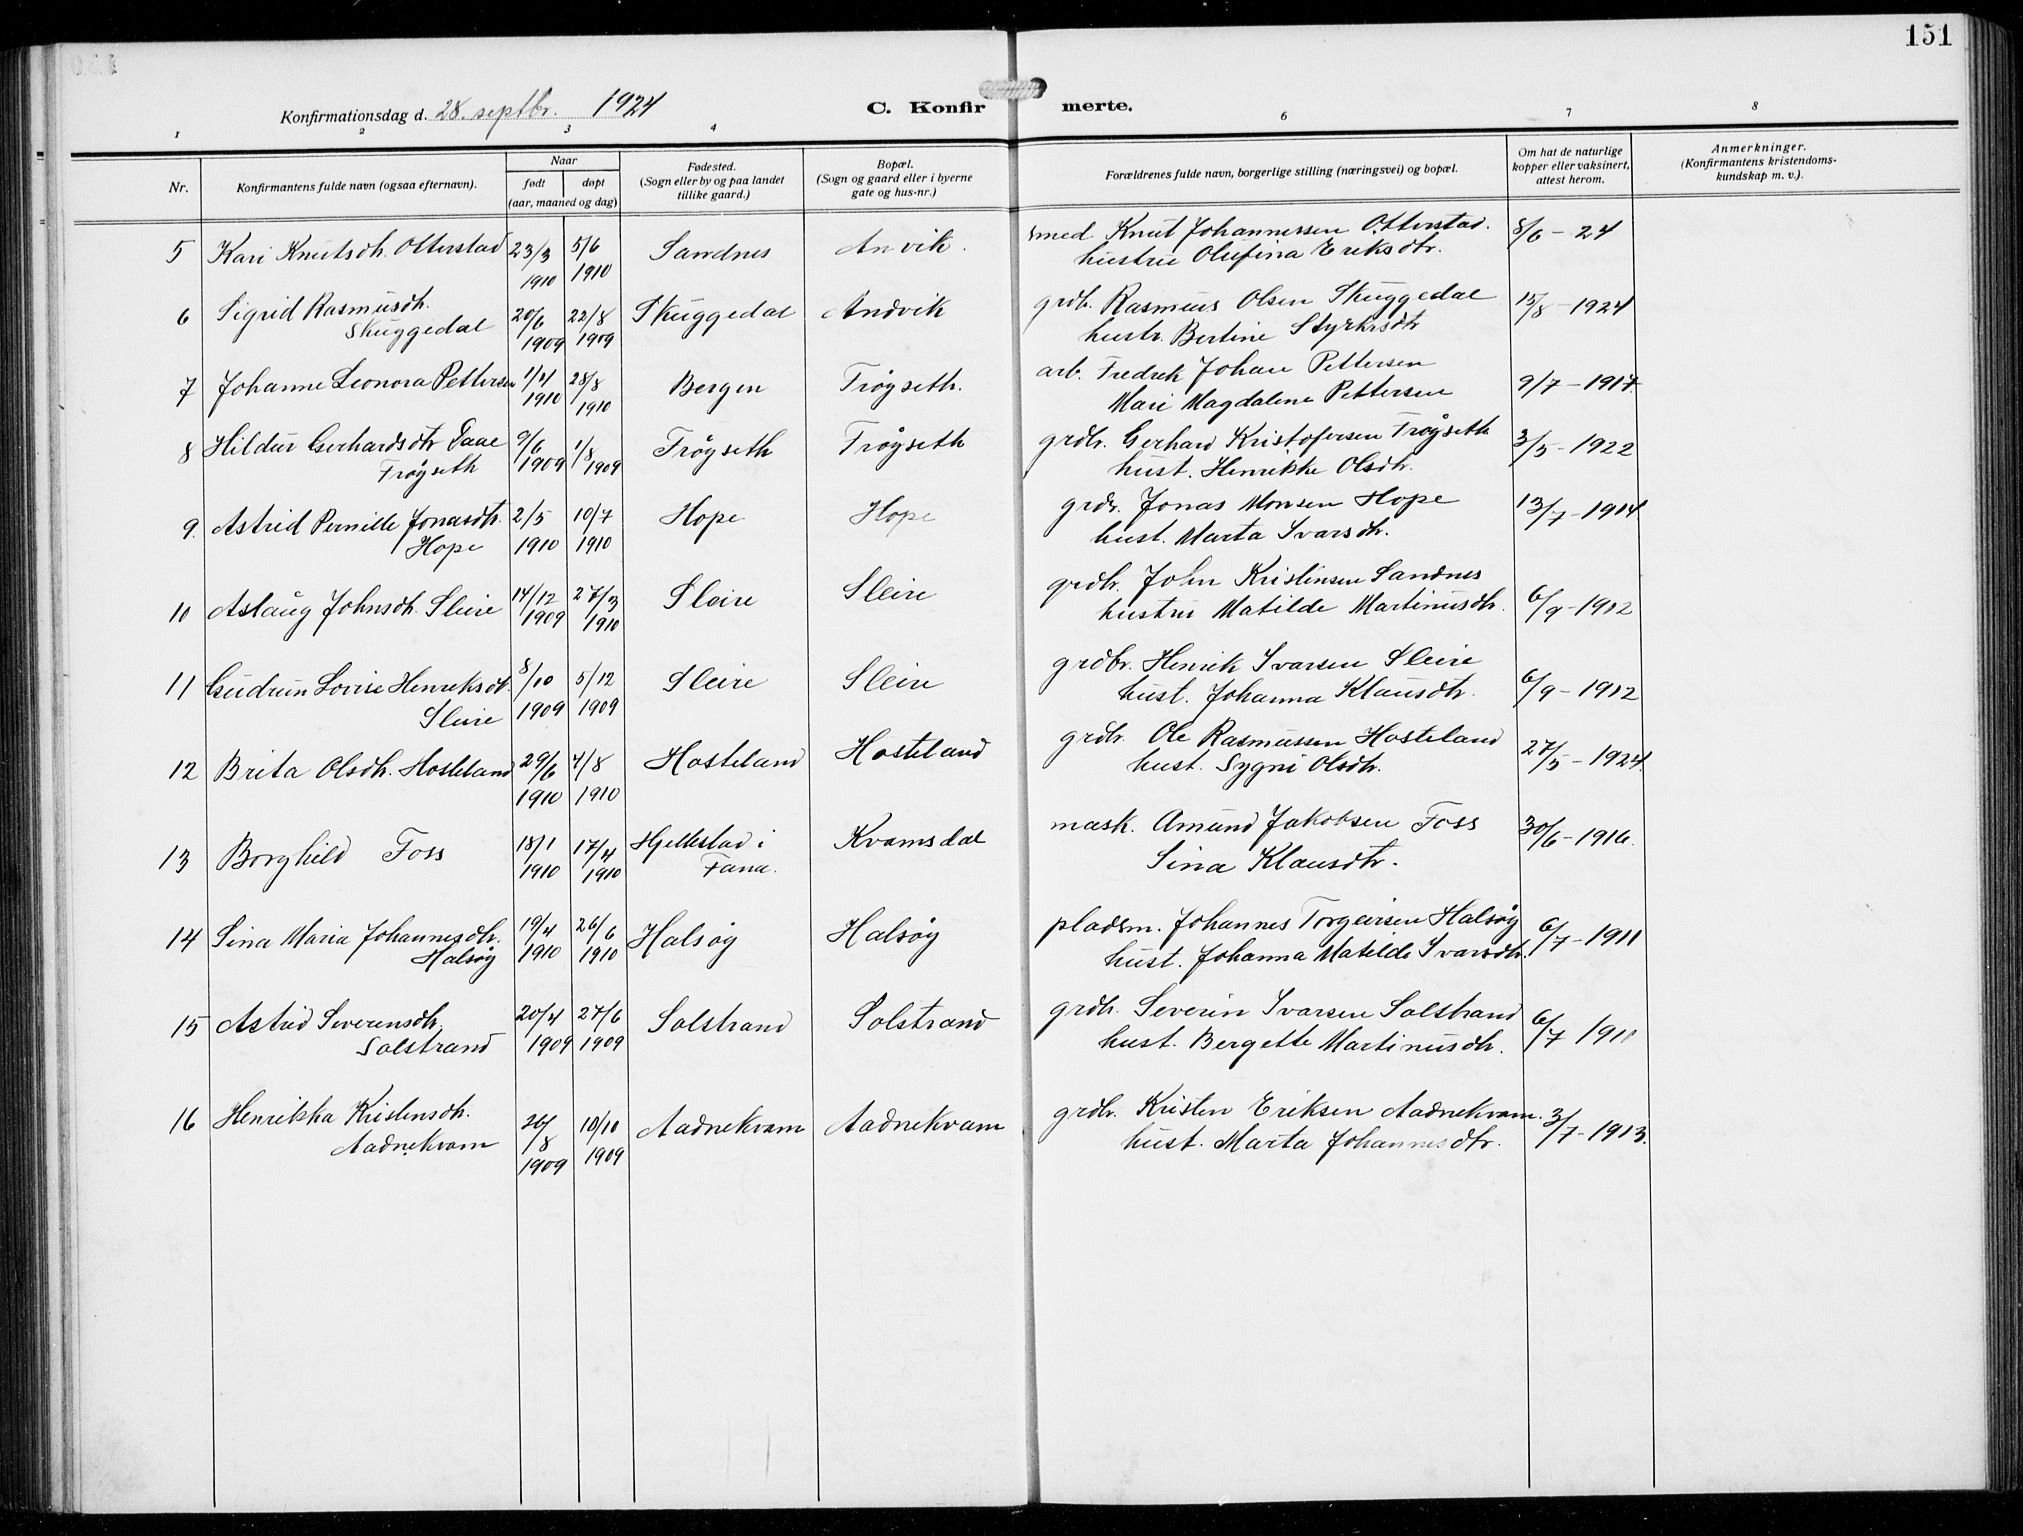 151
Konfirmationsdag d. 28. septbr. 1924
C. Konfirmerte.
1 2 3 4 6 7 8
Nr.
Konfirmantens fulde navn (ogsaa efternavn).
Naar
født døpt
(aar, maaned og dag)
Fødested.
(Sogn eller by og paa landet
tillike gaard.)
Bopæl.
(Sogn og gaard eller i byerne
gate og hus-nr.)
Forældrenes fulde navn, borgerlige stilling (næringsvei) og bopæl.
Om hat de naturlige
kopper eller vaksinert,
attest herom.
Anmerkninger.
(Konfirmantens kristendoms-
kundskap m. v.).
5 Kari Knutsdtr. Otterstad 23/3 1910 5/6 1910 Sandnes Anvik. smed Knut Johannessen Otterstad. 8/6 - 24
hustru Olufina Eriksdtr.
6 Sigrid Rasmusdtr. 20/6 1909 22/8 1909 Skuggedal Andvik grdbr. Rasmus Olsen Skuggedal 15/8 - 1924
Skuggedal hustr. Bertine Styrkrsdtr
7 Johanne Leonora Pettersen 1/4 1910 28/8 1910 Bergen Trøyseth. arb. Fredrek Johan Pettersen 9/7 - 1917
Mari Magdalene Pettersen
8 Hildur Gerhardsdtr Daae 9/6 1909 1/8 1909 Trøyseth Trøyseth grdbr. Gerhard Kristofersen Trøyseth 3/5 - 1922
Trøyseth hust. Henrikke Olsdtr.
9. Astrid Pernille Jonasdtr. 2/5 1910 10/7 1910 Hope Hope grdr. Jonas Monsen Hope 13/7 - 1914
Hope hust. Marta Ivarsdtr.
10 Aslaug Johnsdtr. Sleire 14/12 1909 27/3 1910 Sleire Sleire grdbr. John Kristinsen Sandnes 6/9 - 1912
hustru Matilde Martinusdtr.
11 Gudrun Lovise Henriksdtr. 8/10 1909 5/12 1909 Sleire Sleire grdbr. Henrik Ivarsen Sleire 6/9 - 1912
Sleire hust. Johanna Klausdtr.
12 Brita Olsdtr. Hosteland 29/6 1910 4/8 1910 Hosteland Hosteland grdbr. Ole Rasmussen Hosteland 27/5 - 1924.
hust. Sygni Olsdtr.
13 Borghild Foss 18/1 1910 17/4 1910 Hjellestad i Kvamsdal mask. Amund Jakobsen Foss 30/6 - 1916.
Fana. Sina Klausdtr.
14 Sina Maria Johannesdtr. 19/4 1910 26/6 1910 Halsøy Halsøy pladsm. Johannes Torgeirsen Halsøy 6/7 - 1911
Halsøy hust. Johanna Matilde Ivarsdtr.
15 Astrid Severinsdtr. 20/4 1909 27/6 1909 Solstrand Solstrand grdbr. Severin Ivarsen Solstrand 6/7 1911
Solstrand hust. Bergette Martinusdtr.
16 Henrikka Kristensdtr. 8 1909 10/10 1909 Aadnekvam Aadnekvam grdbr. Kristen Eriksen Aadnekvam. 3/7 - 1913.
Aadnekvam hust. Marta Johannesdtr.